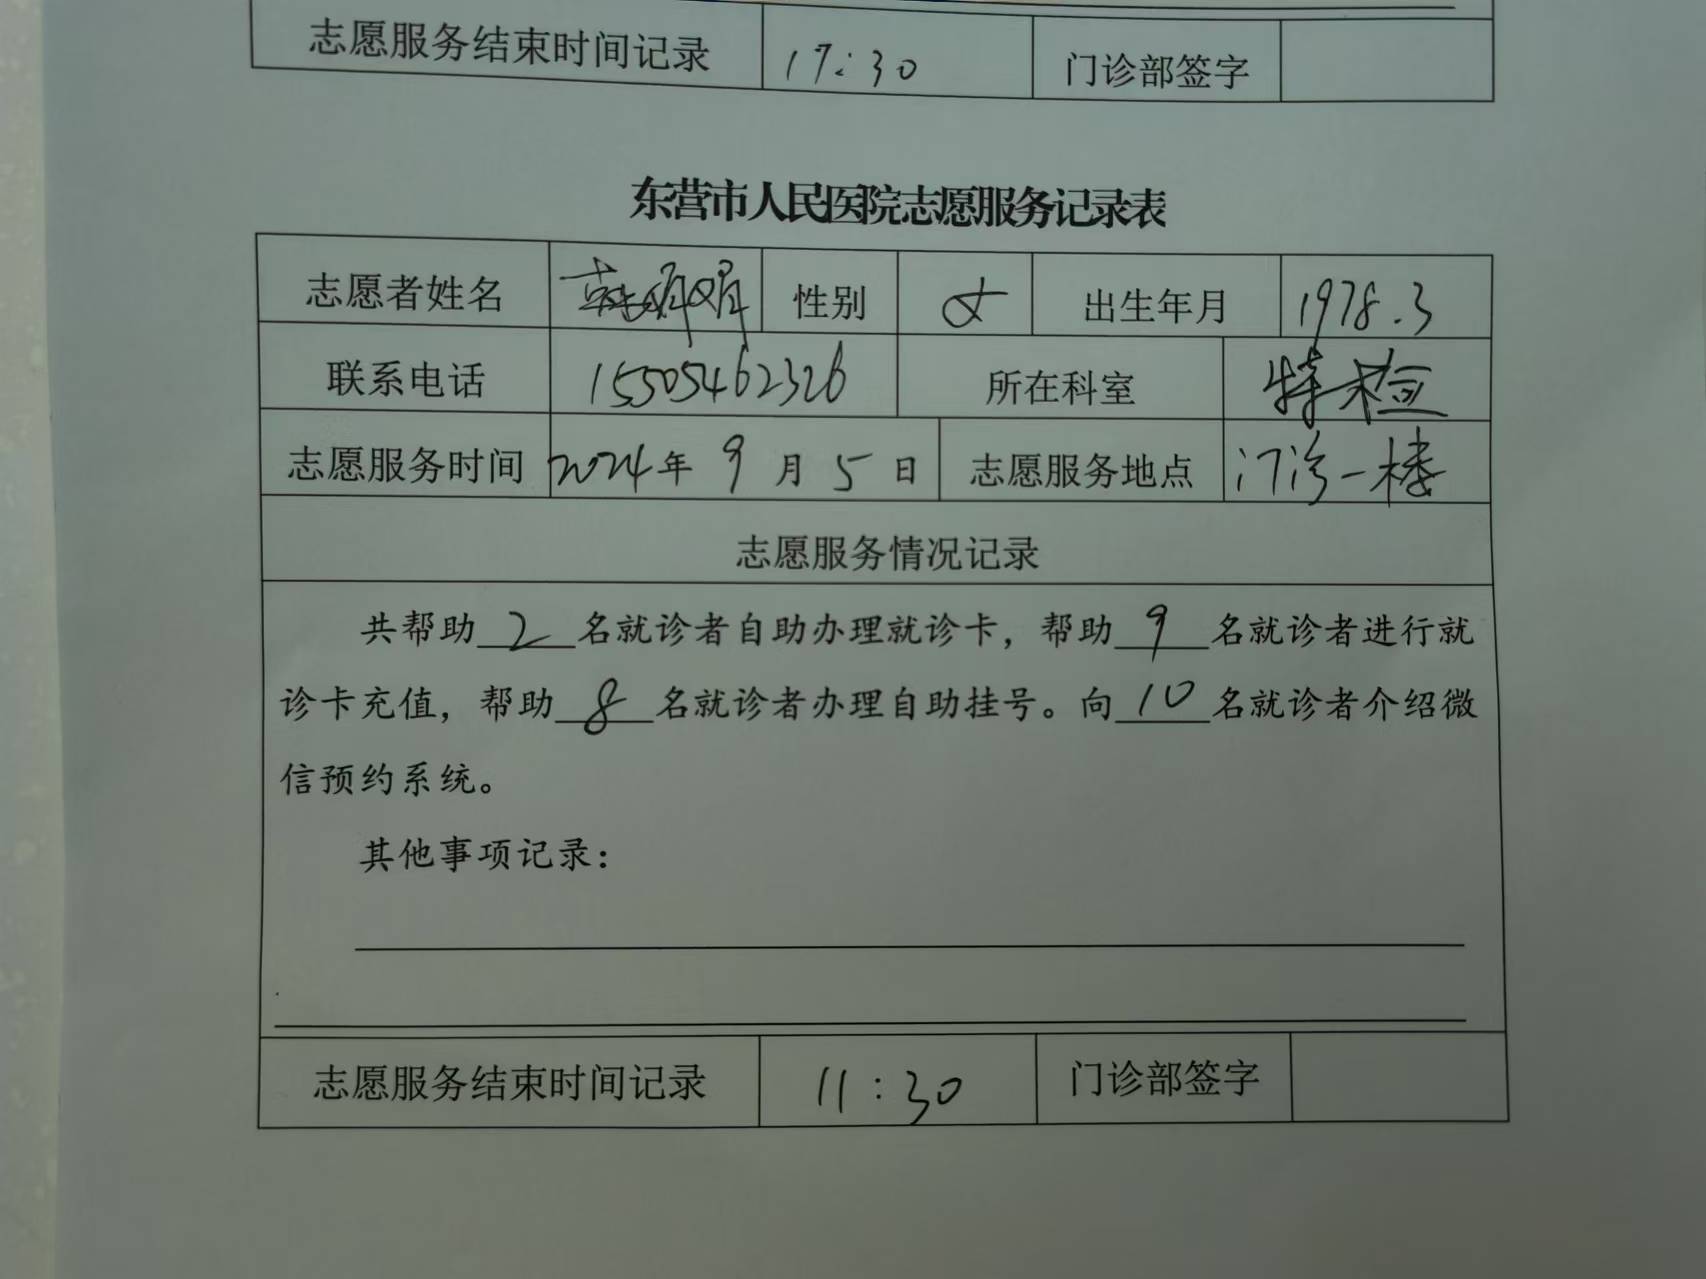 志愿服务结束时间记录 17:30 门诊部签字
东营市人民医院志愿服务记录表
志愿者姓名 性别 女 出生年月 1978.3
联系电话 15505462326 所在科室 特检
志愿服务时间 2024年 9 月 5 日 志愿服务地点 门诊一楼
志愿服务情况记录
共帮助 2 名就诊者自助办理就诊卡，帮助 9 名就诊者进行就
诊卡充值，帮助 8 名就诊者办理自助挂号。向 10 名就诊者介绍微
信预约系统。
其他事项记录：
志愿服务结束时间记录 11:30 门诊部签字